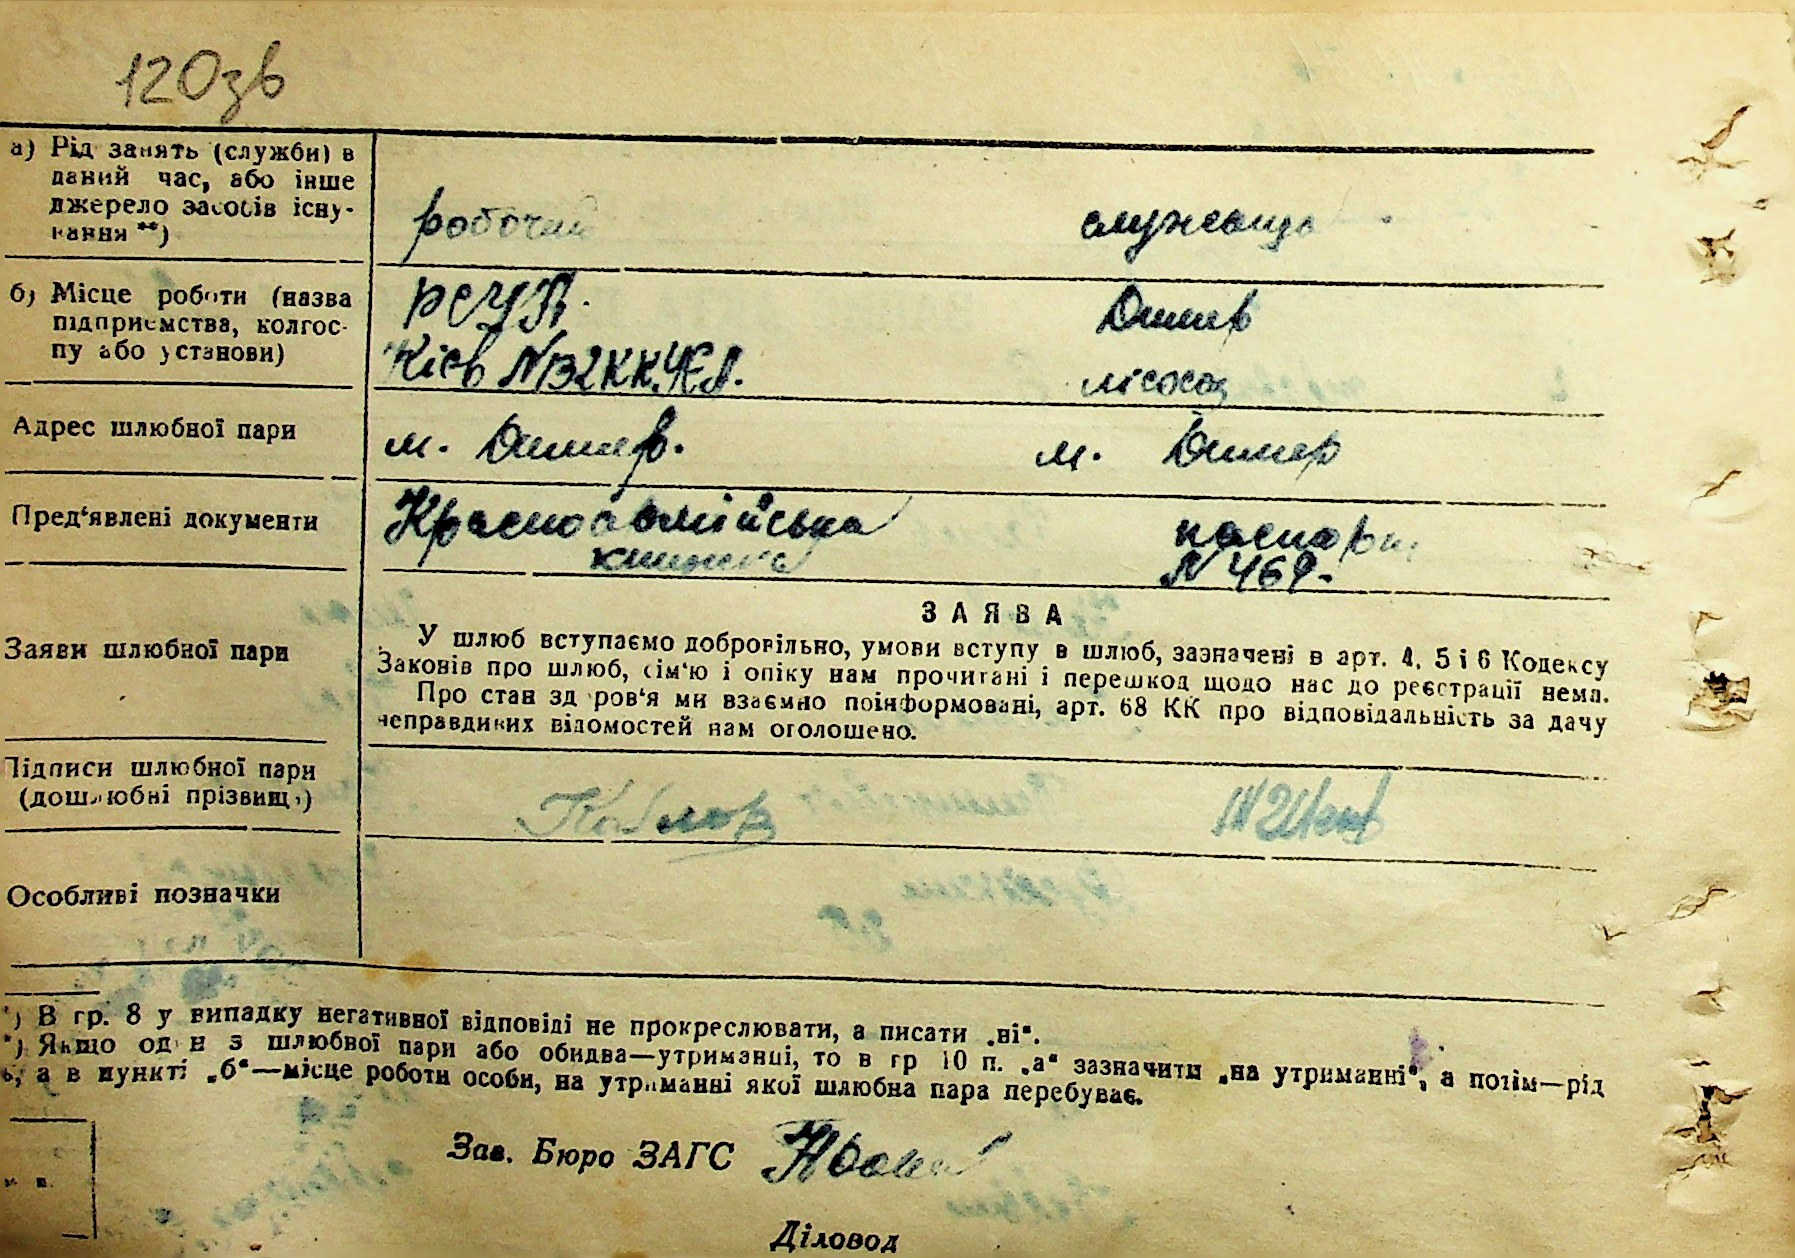 120зв
а) Рід занять (служби) в
даний час, або інше
джерело засобів існу-
вання **)
робочий
служеща
б) Місце роботи (назва
підприємства, колгос-
пу або установи)
Димер
Київ №
лісосад
Адрес шлюбної пари
м. Димер.
м. Димер
Пред‘явлені документи
Красноармійська
книжка
паспорт
N 469.
Заяви шлюбної пари
ЗАЯВА
У шлюб вступаємо добровільно, умови вступу в шлюб, зазначені в арт. 4, 5 і 6 Кодексу
Законів про шлюб, сім‘ю і опіку нам прочитані і перешкод щодо нас до реєстрації нема.
Про стан здоров‘я ми взаємно поінформовані, арт. 68 КК про відповідальність за дачу
неправдивих відомостей нам оголошено.
Підписи шлюбної пари
(дошлюбні прізвища)
Особливі позначки
*) В гр. 8 у випадку негативної відповіді не прокреслювати, а писати „ні“.
*) Якщо один з шлюбної пари або обидва—утриманці, то в гр 10 п. „а“ зазначити „на утриманні“, а потім—рід
а в пункті „б“—місце роботи особи, на утриманні якої шлюбна пара перебуває.
Зав. Бюро ЗАГС
Діловод